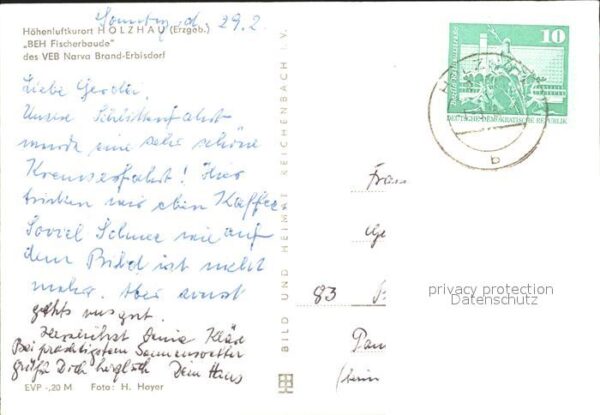 Sonntag, d. 29.2.
Höhenluftkurort HOLZHAU (Erzgeb.)
„BEH Fischerbaude"
des VEB Narva Brand-Erbisdorf
Liebe Gerda,
Unsere Schlittenfahrt
wurde eine sehr schöne
Kremserfahrt! Hier
trinken wir eben Kaffee
Soviel Schnee wie auf
dem Bild ist nicht
mehr. Aber sonst
gehts uns gut.
Herzlichst Deine Kläre
Bei prächtigstem Sonnenwetter
grüßt Dich herzlich Dein Hans
EVP -,20 M Foto: H. Hoyer
BILD UND HEIMAT REICHENBACH I. V.
10
DEUTSCHE DEMOKRATISCHE REPUBLIK
HOLZHAU
b
Frau
83
privacy protection
Datenschutz